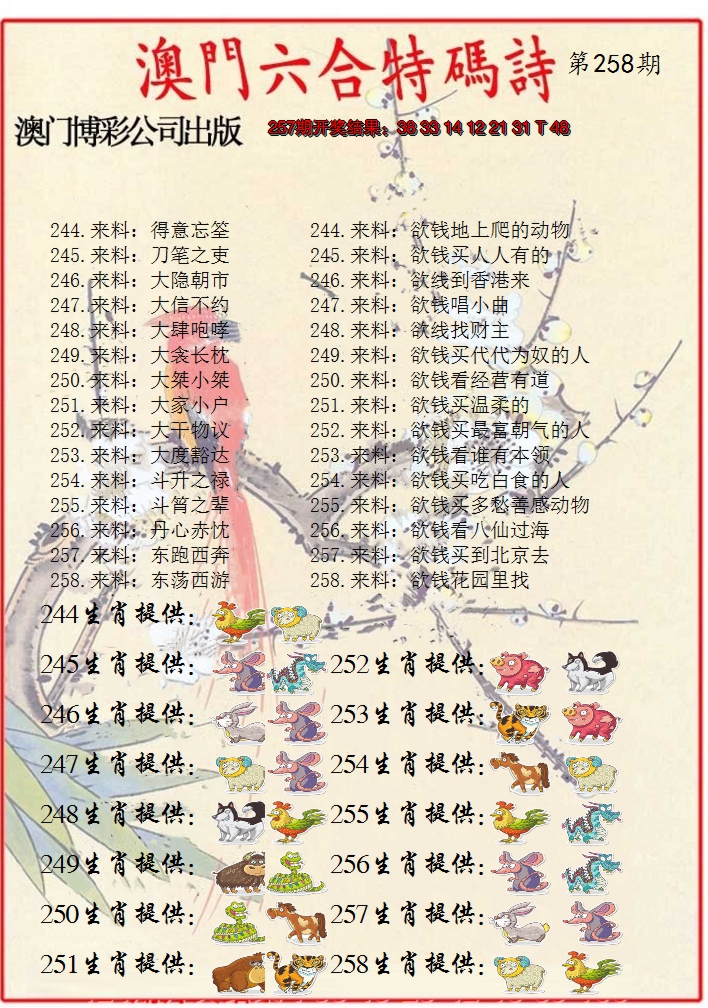 澳門六合特碼詩 第258期
澳门博彩公司出版 257期开奖结果：38 33 14 12 21 31 T 46
244.来料：得意忘筌 244.来料：欲钱地上爬的动物
245.来料：刀笔之吏 245.来料：欲钱买人人有的
246.来料：大隐朝市 246.来料：欲线到香港来
247.来料：大信不约 247.来料：欲钱唱小曲
248.来料：大肆咆哮 248.来料：欲线找财主
249.来料：大衾长枕 249.来料：欲钱买代代为奴的人
250.来料：大桀小桀 250.来料：欲钱看经营有道
251.来料：大家小户 251.来料：欲钱买温柔的
252.来料：大干物议 252.来料：欲钱买最富朝气的人
253.来料：大度豁达 253.来料：欲钱看谁有本领
254.来料：斗升之禄 254.来料：欲钱买吃白食的人
255.来料：斗筲之辈 255.来料：欲钱买多愁善感动物
256.来料：丹心赤忱 256.来料：欲钱看八仙过海
257.来料：东跑西奔 257.来料：欲钱买到北京去
258.来料：东荡西游 258.来料：欲钱花园里找
244生肖提供：
245生肖提供： 252生肖提供：
246生肖提供： 253生肖提供：
247生肖提供： 254生肖提供：
248生肖提供： 255生肖提供：
249生肖提供： 256生肖提供：
250生肖提供： 257生肖提供：
251生肖提供： 258生肖提供：